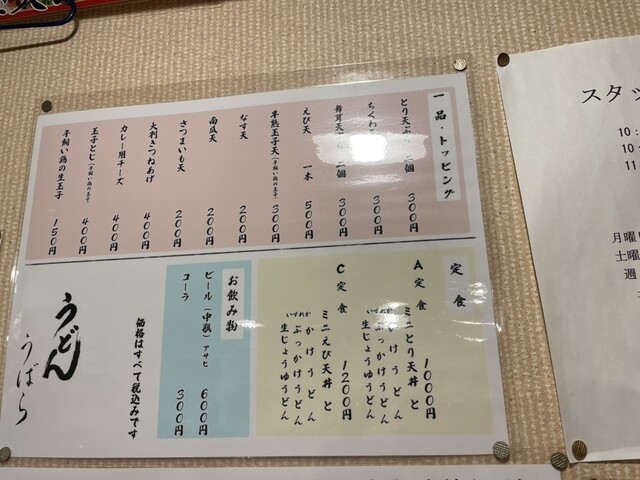 一品・トッピング
とり天 二個 300円
ちくわ 二個 300円
舞茸天 二個 300円
えび天 一本 500円
半熟玉子天(平飼い鶏の玉子) 300円
なす天 200円
南瓜天 200円
さつまいも天 200円
大判きつねあげ 400円
カレー用チーズ 400円
玉子とじ(平飼い鶏の玉子) 400円
平飼い鶏の生玉子 150円
定食
A定食 1000円
ミニとり天丼 と
いずれか かけうどん
ぶっかけうどん
生じょうゆうどん
C定食 1200円
ミニえび天丼 と
いずれか かけうどん
ぶっかけうどん
生じょうゆうどん
お飲み物
ビール(中瓶)アサヒ 600円
コーラ 300円
価格はすべて税込みです
うどん
うばら
スタッ
10:
10:
11
月曜
土曜
週